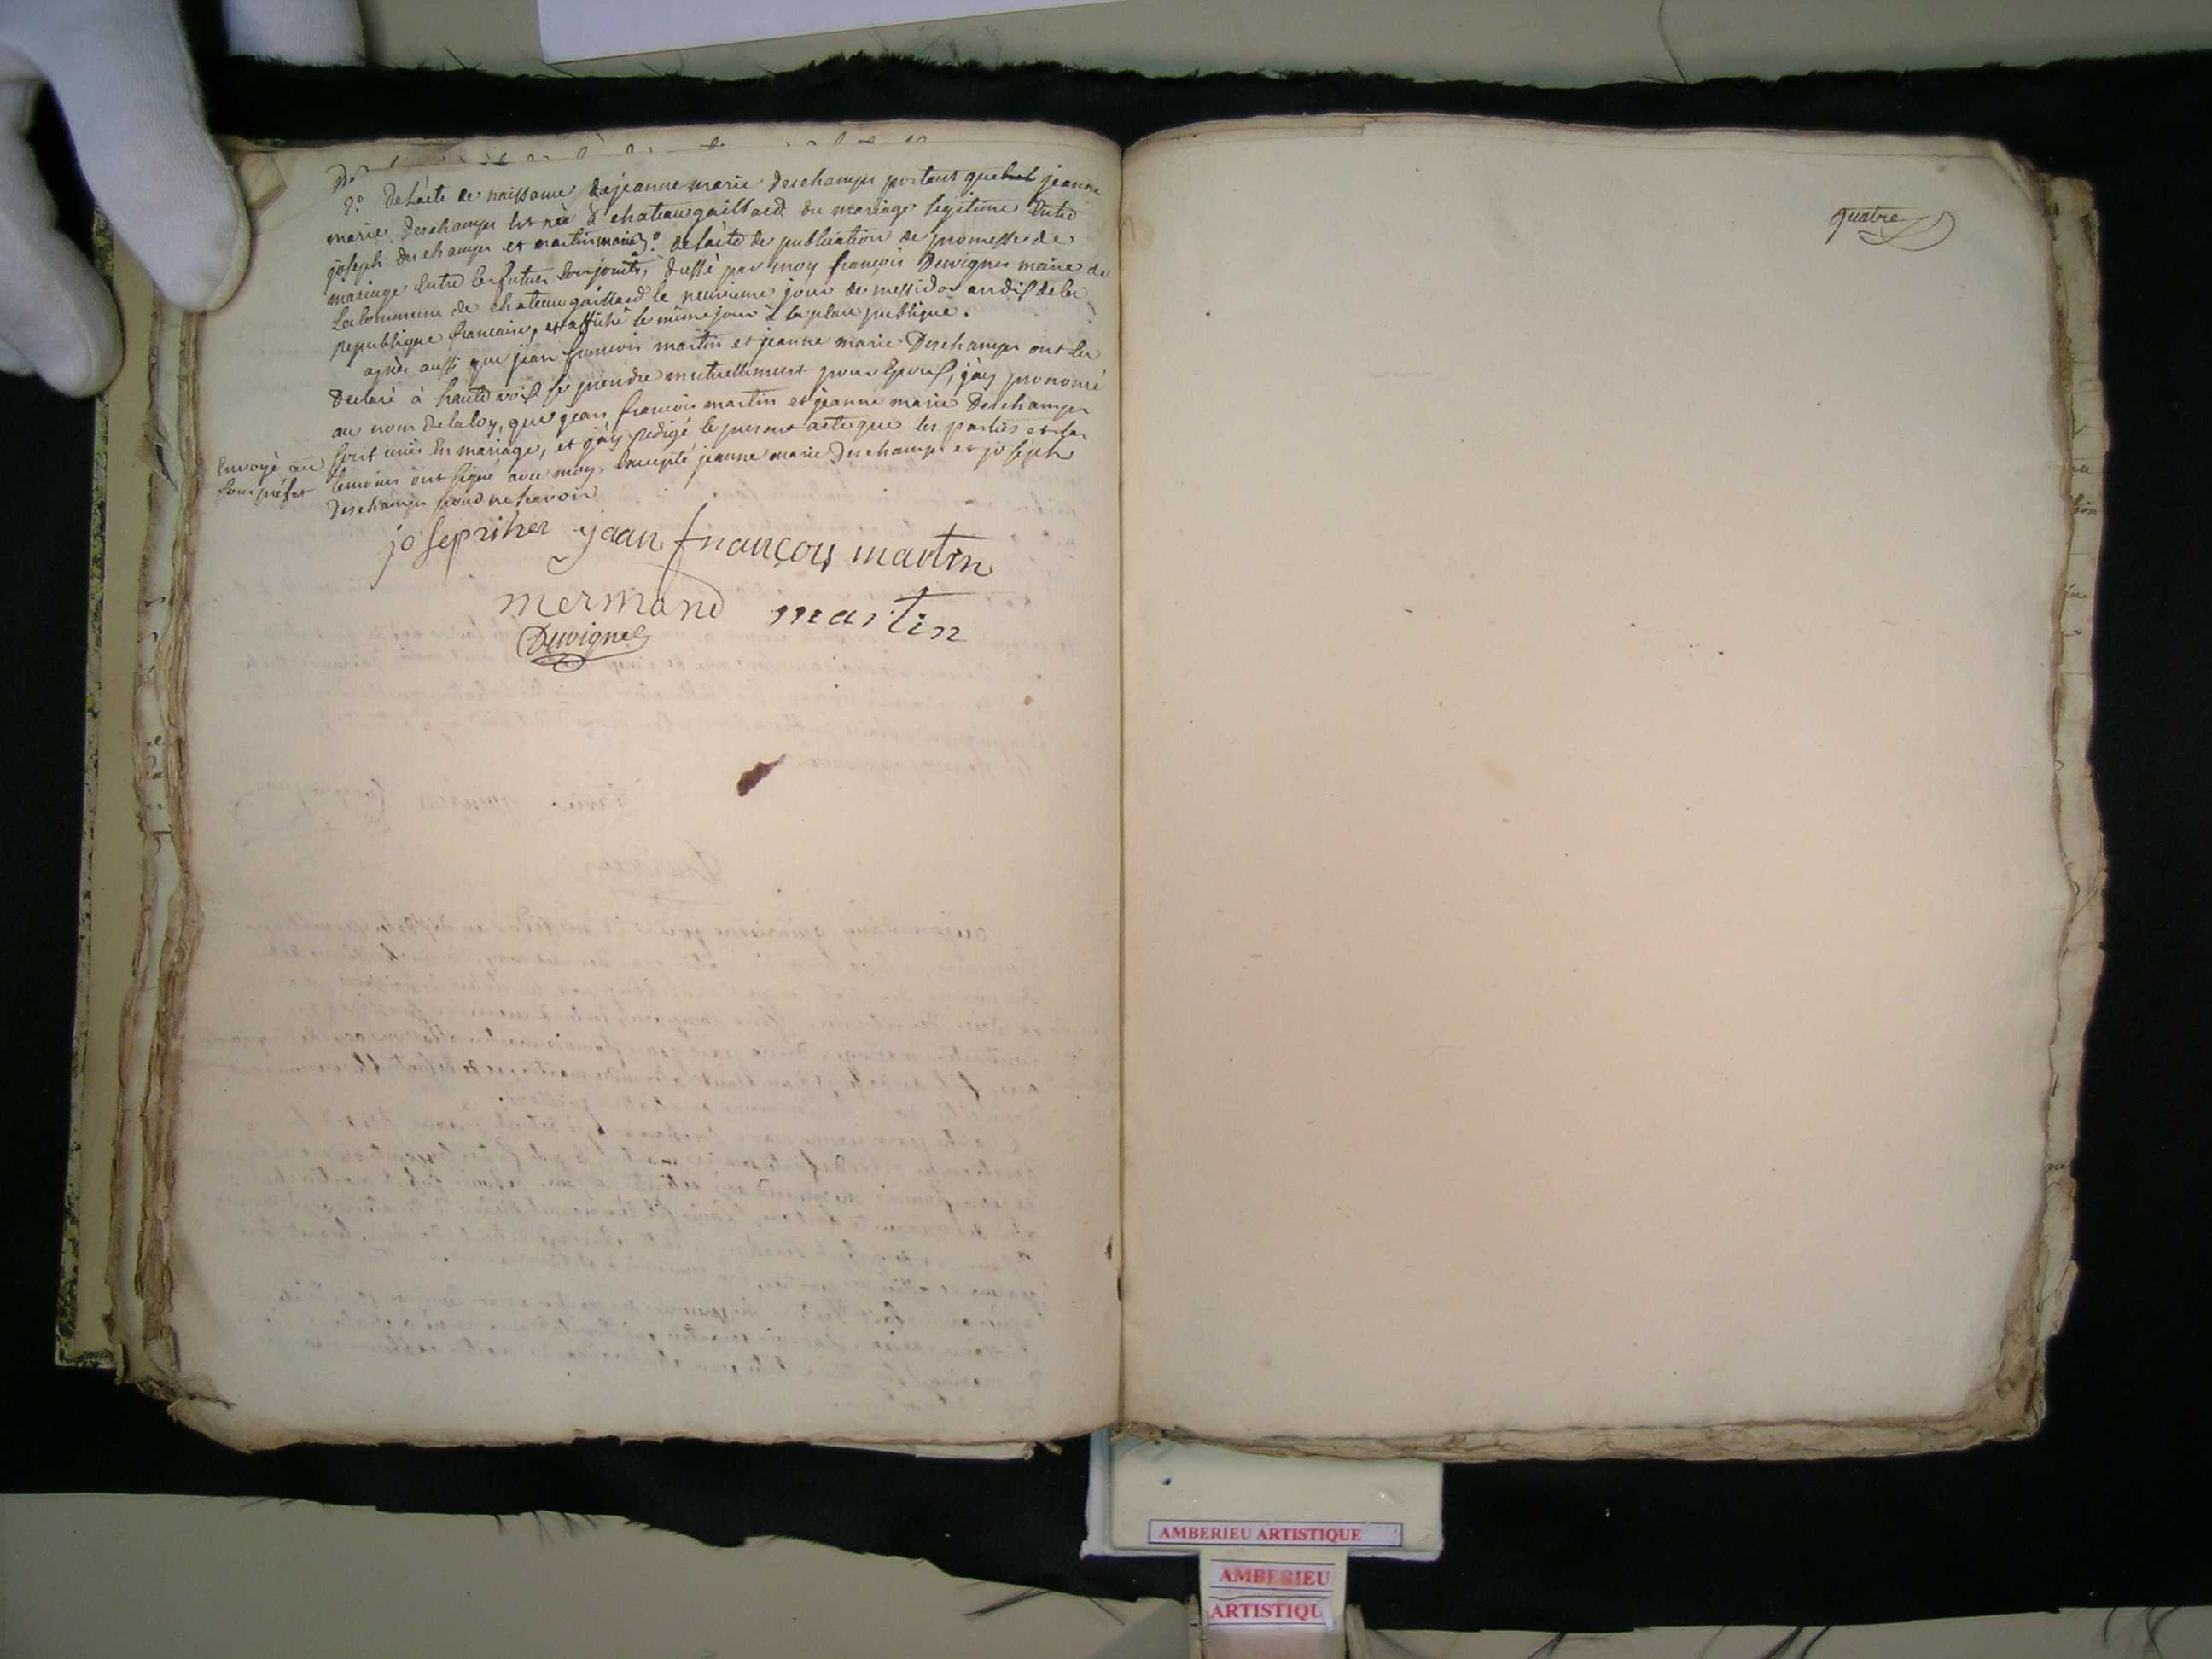 2.° de l'acte de naissance de jeanne marie deschamps portant que jeanne
marie deschamps est née à chateaugaillard du mariage legitime entre
joseph deschamps et martin marie 3.° de l'acte de publication de promesse de
mariage entre les futurs conjoints, dressé par moy françois Duvignes maire de
la commune de chateaugaillard le neuvieme jour de messidor an dix de la
republique francaise, et affiché le même jour à la place publique.
après aussi que jean francois martin et jeanne marie Deschamps ont eu
declaré à haute voix se prendre mutuellement pour epoux, j'ay prononcé
au nom de la loy, que jean francois martin et jeanne marie Deschamps
sont unis en mariage, et j'ay redigé le present acte que les parties et les
temoins ont signé avec moy, excepté jeanne marie Deschamps et joseph
deschamps pour ne scavoir
Envoyé au
sous préfet
jean françois martin
mermand martin
Duvignes
quatre
AMBERIEU ARTISTIQUE
AMBERIEU
ARTISTIQU